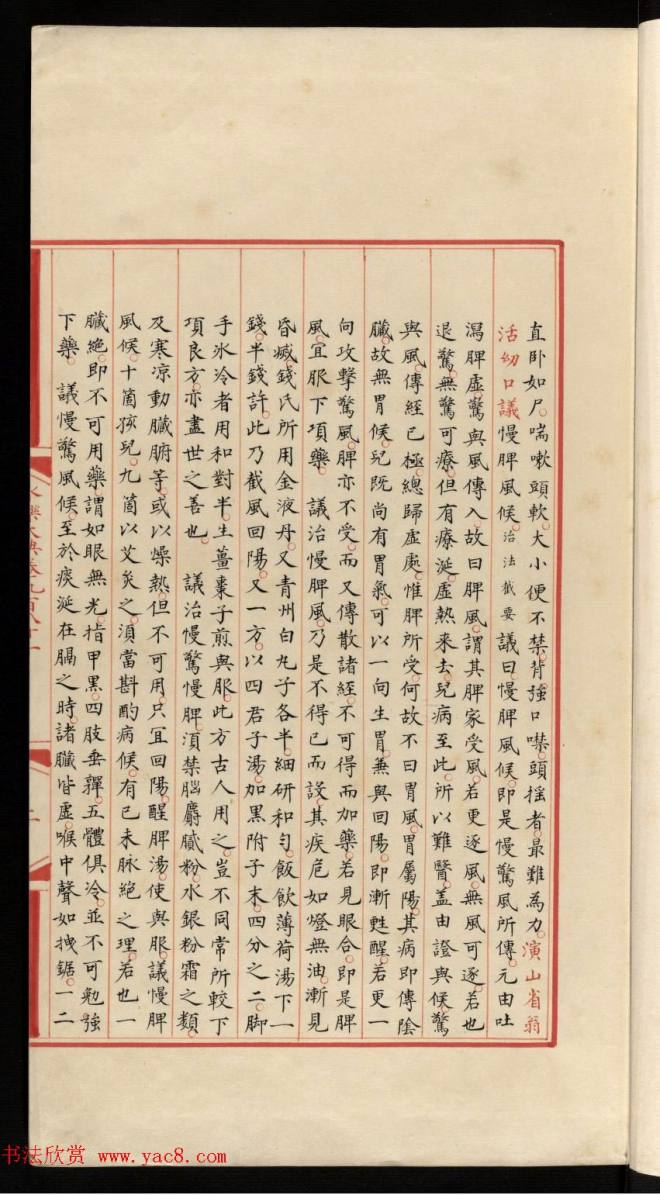 直卧如尸。喘嗽頭軟。大小便不禁。背強口噤。頭揺者。最難為力。演山省翁
活幼口議慢脾風候。治法截要議曰。慢脾風候。即是慢驚風所傳。元由吐
瀉脾虛。驚與風傳入。故曰脾風。謂其脾家受風。若更逐風。無風可逐。若也
退驚。無驚可療。但有療涎。虛熱来去。兒病至此。所以難醫。盖由證與候。驚
與風。傳經已極。總歸虛處。惟脾所受。何故不曰胃風。胃屬陽。其病即傳陰
臟。故無胃候。兒既尚有胃氣。可以一向生胃。兼與回陽。即漸甦醒。若更一
向攻擊驚風。脾亦不受。而又傳散諸經。不可得而加藥。若見眼合。即是脾
風。宜服下項藥。議治慢脾風。乃是不得已而設。其疾危如燈無油。漸見
昏滅。錢氏所用金液丹。又青州白丸子各半。細研和勻。飯飲薄荷湯下一
錢。半錢許。此乃截風回陽。又一方。以四君子湯加黑附子末。四分之二。脚
手氷冷者。用和對半。生薑棗子煎與服。此方古人用之。豈不同常所較下
項良方。亦盡世之善也。議治慢驚慢脾。湏禁腦麝膩粉。水銀粉霜之類。
及寒凉動臟腑等。或以燥熱。但不可用。只宜回陽。醒脾湯。使與服。議慢脾
風候。十箇孩兒。九箇以艾灸之。湏當斟酌病候。有已未脉絶之理。若也一
臟絶。即不可用藥。謂如眼無光。指甲黑。四肢垂嚲。五體俱冷。並不可勉強
下藥。議慢驚風候。至於痰涎在膈之時。諸臟皆虛。喉中聲如拽鋸。一二
永樂大典卷九百八十一
二
书法欣赏 www.yac8.com